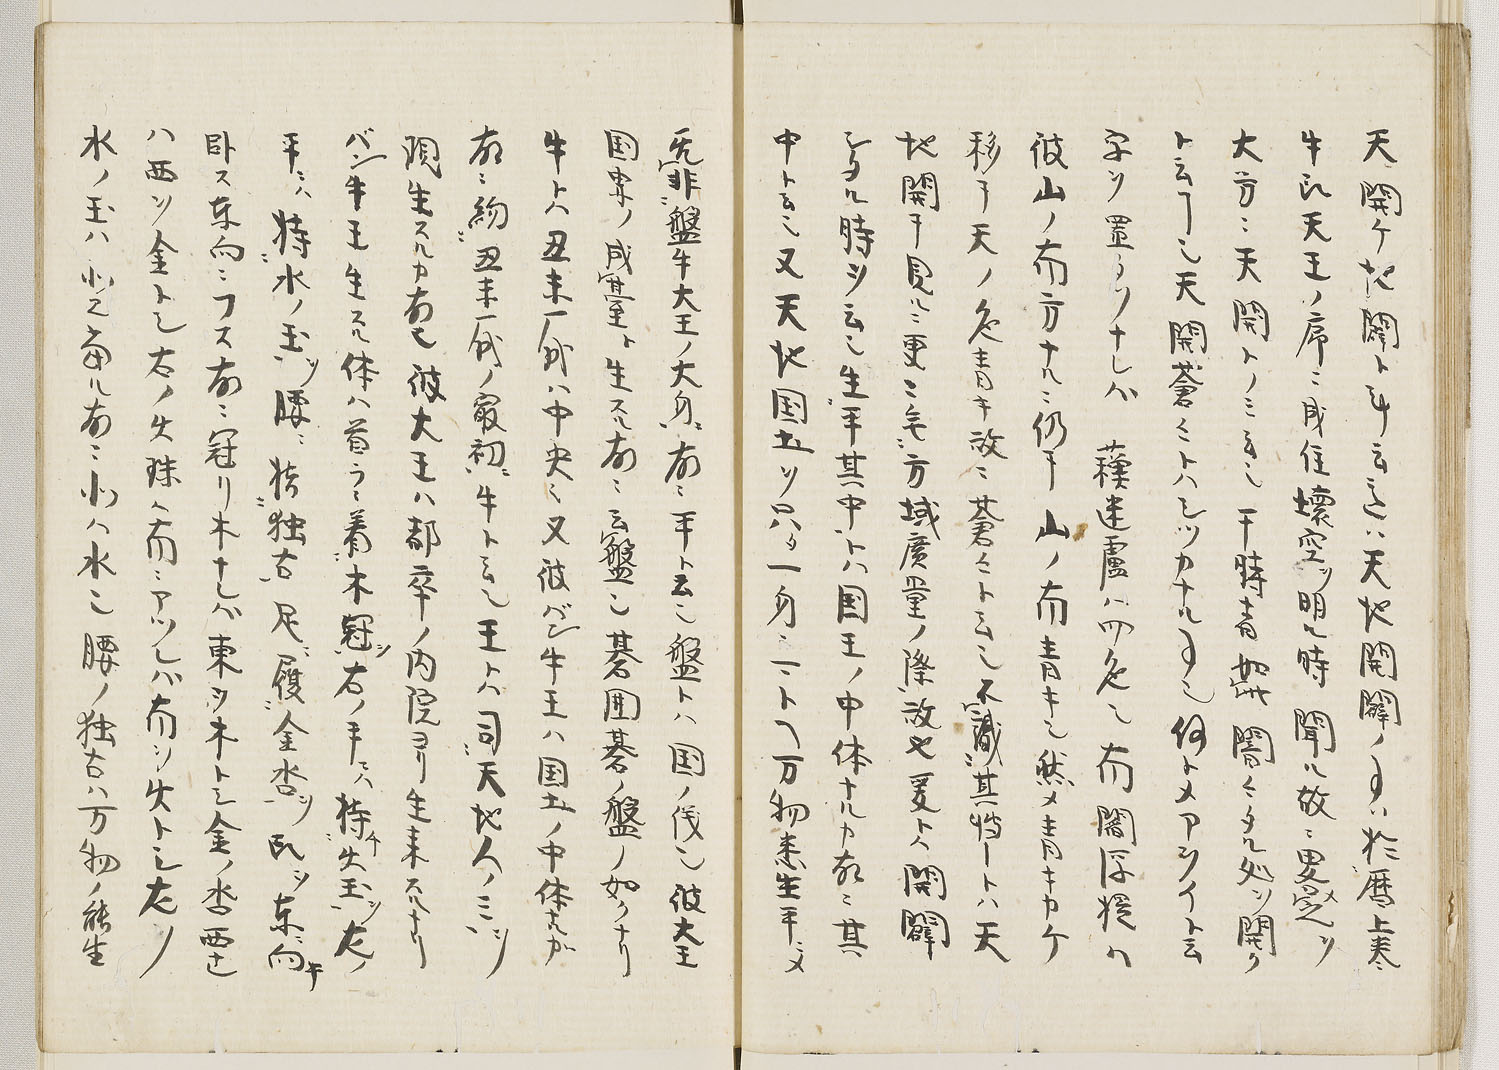 天開ケ地闢ト云ハ天地開闢ノ事ハ於暦上巻
牛氏天王ノ序ニ成住壊空ヲ明ル時聞ル故ニ更ニ
大方ニ天開トノミ云ニ干時青如此闇々タル処ヲ開ク
ト云フ事也天開蒼々トハシツカナル事也何トメアヲイト云
字ヲ置クソナレハ 蘓迷盧ハ四色也南閻浮提ハ
彼山ノ南方ナルニ仍テ山ノ南青キ也然メ青キカケ
移テ天ノ色青キ故ニ蒼々ト云也不識其時トハ天
地開テ見ルニ更ニ無方域廣量ノ際故也爰ト開闢
シタル時ヲ云也生平其中トハ国王ノ中体ナルカ故ニ其
中ト云也又天地国土ヲ只タ一身ニ一ト万物悉生平メ
冤霏盤牛大王ノ大身故ニ平ト云也盤トハ国ノ儀也彼大王
国界ノ成臺ト生スル故ニ云盤也碁囲碁ノ盤ノ如クナリ
牛トハ丑未一躰ハ中央也又彼バン牛王ハ国土ノ中体ナルカ
故ニ約丑未一躰ノ最初牛ト云也王トハ司天地人ノ三ヲ
現生スルカ故也彼大王ハ都卒ノ内院ヨリ生来スルナリ
バン牛王生スル体ハ首ラニ着木冠ヲ右ノ手ニハ持火玉ヲ左ノ
手ニハ持水ノ玉ヲ腰ニ持独古足ニ履金沓ヲ臥ヲ東向テ
臥ス東向ニフス故ニ冠リ木ナレハ東ヲ木トシ金ノ沓西ナレ
ハ西ヲ金トシ右ノ火珠ハ南ニアツレハ南ヲ火トシ左ノ
水ノ玉ハ北ニ当ル故ニ北ハ水也腰ノ独古ハ万物ノ能生